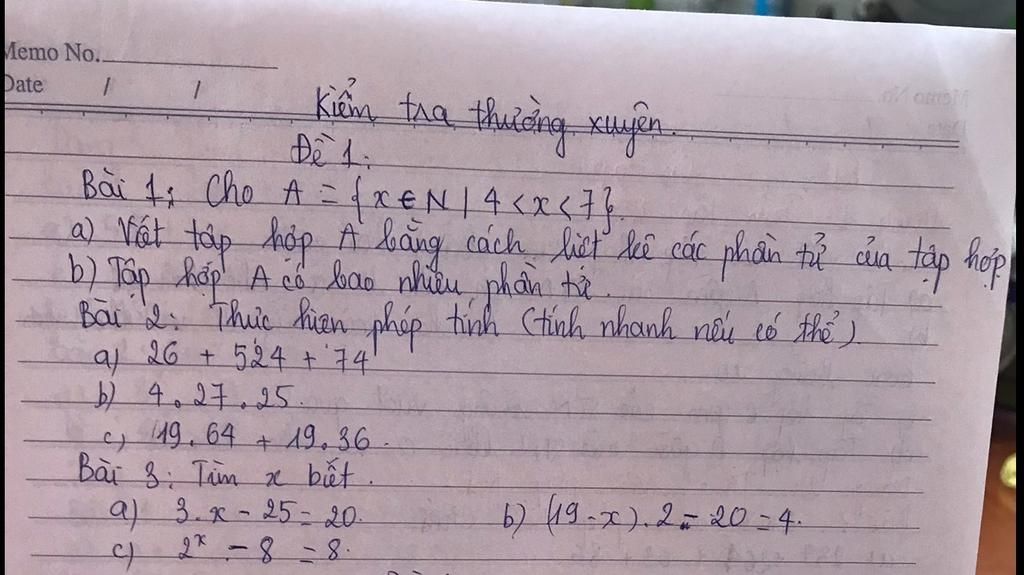 Memo No.
Date / /
Kiểm tra thường xuyên.
Đề 1:
Bài 1: Cho A = {x ∈ N | 4 < x < 7}.
a) Viết tập hợp A bằng cách liệt kê các phần tử của tập hợp
b) Tập hợp A có bao nhiêu phần tử.
Bài 2: Thực hiện phép tính (tính nhanh nếu có thể)
a) 26 + 524 + 74
b) 4.27.25.
c) 19.64 + 19.36.
Bài 3: Tìm x biết.
a) 3.x - 25 = 20. b) (19-x).2 - 20 = 4.
c) 2ˣ - 8 = 8.